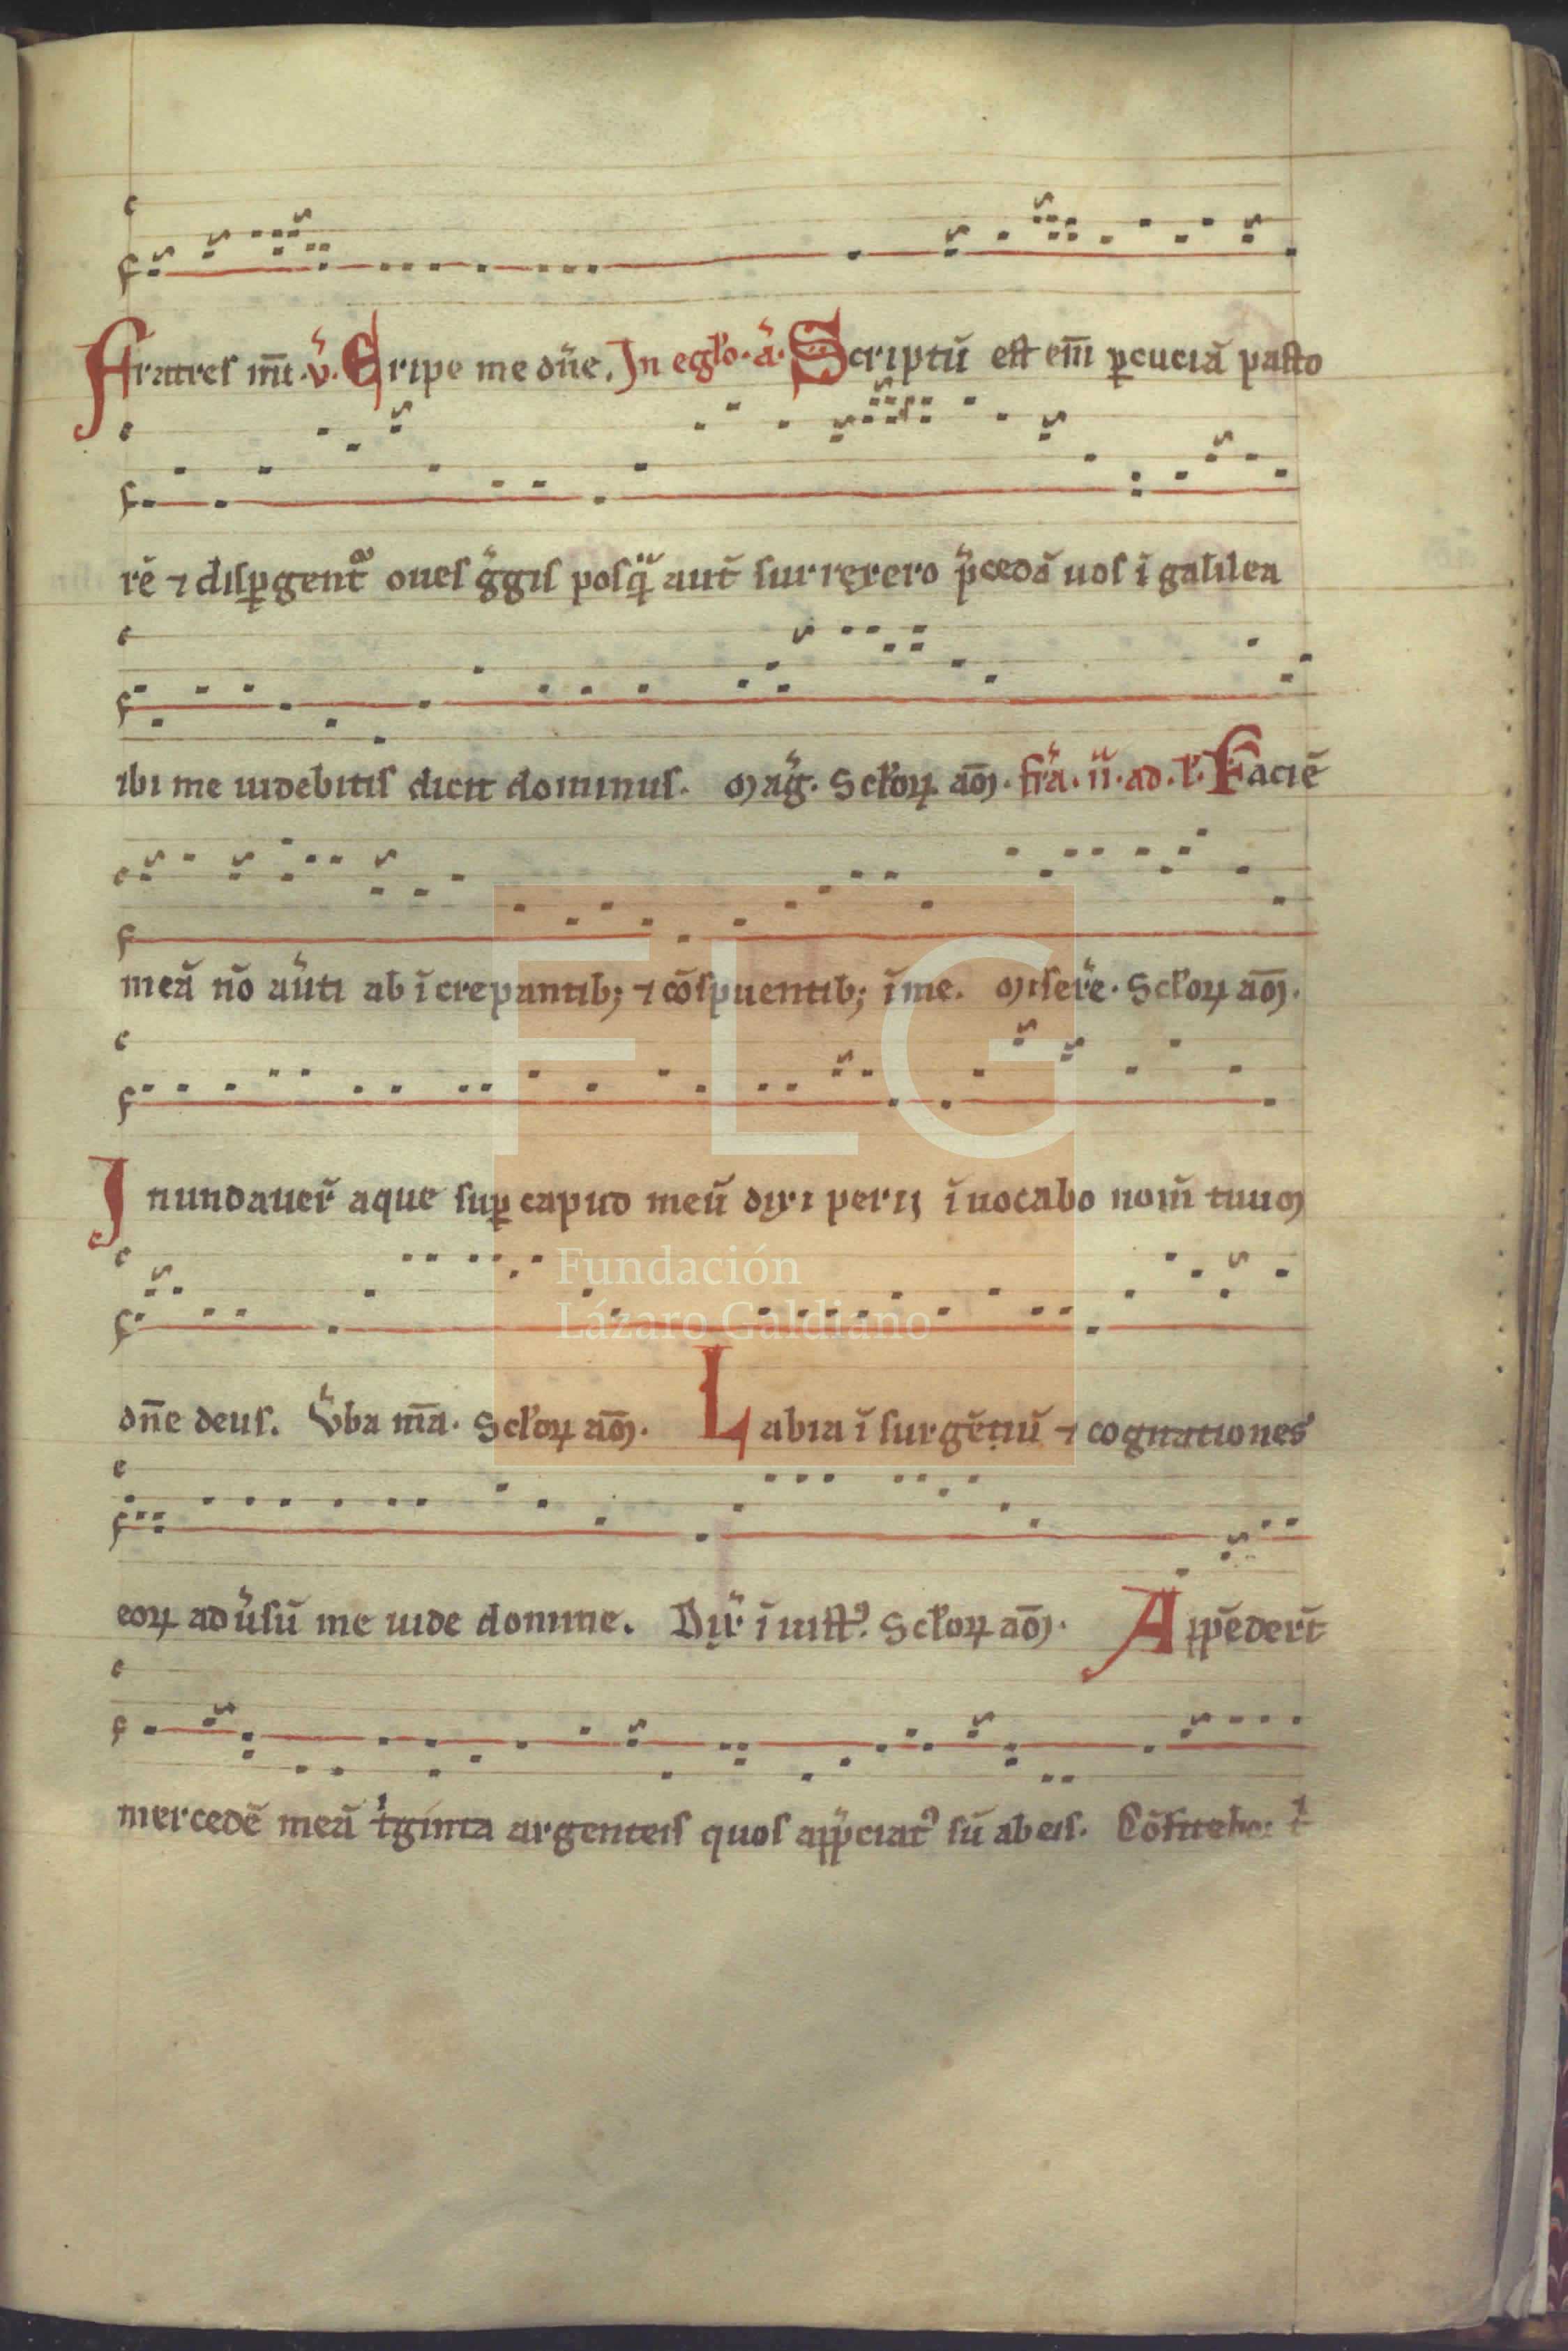 Fratres m̄i. v̉. Eripe me dn̄e. In eglo. a̓. Scriptū est em̄ ꝑcuciā pasto
rē ⁊ disꝑgent᷑ oues gͥgis posqͣ̈ aut̄ surrexero p̉cedā uos ī galilea
ibi me uidebitis dicit dominus. Mag̉. Sc̄loꝝ am̄. fr̉a. ii. ad. l'. Faciē
meā nō au̓ti ab īcrepantib; ⁊ cōspuentib; ī me. Misere̓. Sc̄loꝝ am̄.
Inundauer̄ aque suꝑ capud meū dixi perii īuocabo nom̄ tuum
dn̄e deus. V̓ba m̄a. Sc̄loꝝ am̄. Labia īsurgētiū ⁊ cognationes
eoꝝ adu̓sū me uide domine. Dix̓ īiust᾽. Sc̄loꝝ am̄. Appēder̄t
mercedē meā tͥginta argenteis quos app̓ciat᾽ sū ab eis. Cōfitebor t̉
FLG
Fundación
Lázaro Galdiano